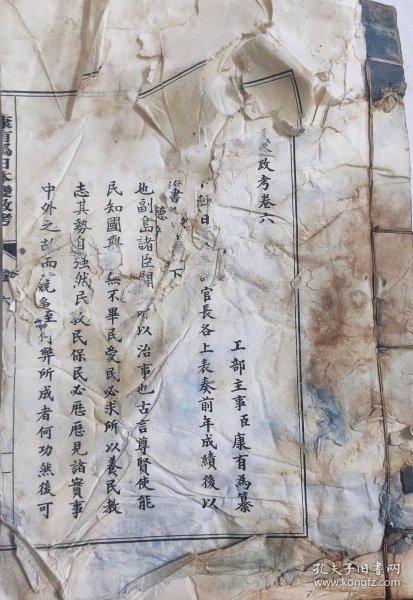 政考卷六
工部主事臣康有為纂
日官長各上表奏前年成績後以
書下
也副島諸臣開以治事也古言尊賢使能
民知國興無不畢民愛民必求所以養民教
志其勢自强然民教民保民必應歷見諸實事
中外之而競爭至弊所成者何功然後可
康有為日本變政考
孔夫子旧书网
www.kongfz.com